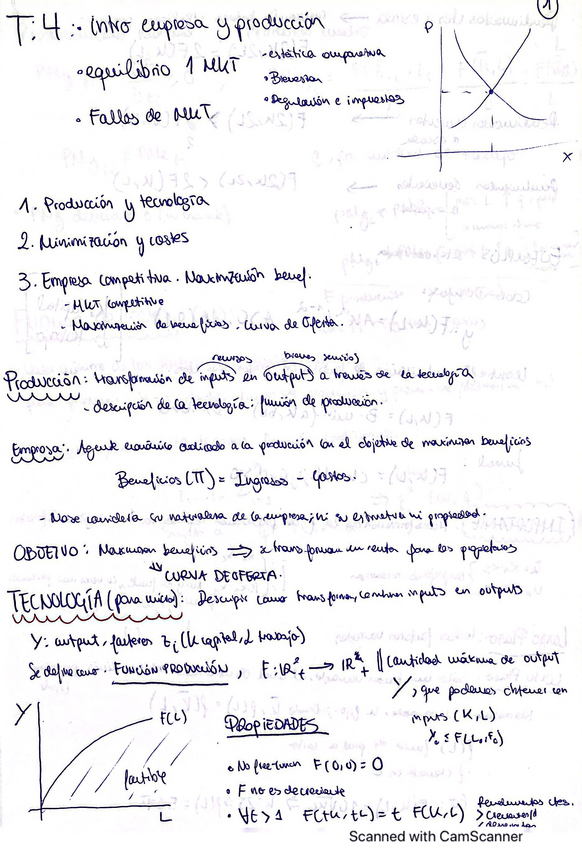 1
T:4: · Intro empresa y producción
· equilibrio 1 MKT
· Fallos de MKT
- estática comparativa
· Bienestar
· Regulación e impuestos
P
X
1. Producción y tecnología
2. Minimización y costes
3. Empresa competitiva. Maximización benef.
- MKT competitivo
- Maximización de beneficios. Curva de Oferta.
recursos bienes servicios
Producción: transformación de inputs en outputs a través de la tecnología
- descripción de la tecnología: función de producción.
Empresa: Agente económico dedicado a la producción con el objetivo de maximizar beneficios
Beneficios (Π) = Ingresos - Gastos.
- No se considera su naturaleza de la empresa, ni su estructura ni propiedad.
OBJETIVO: Maximizar beneficios ⟹ se transforman en renta para los propietarios
CURVA DE OFERTA.
TECNOLOGÍA (para micro): Describir como transforma, combinan inputs en outputs
Y: output, factores z_i (K capital, L trabajo)
Se define como. FUNCIÓN PRODUCCIÓN F: ℝ²₊ → ℝ₊ || Cantidad máxima de output
Y, que podemos obtener con
inputs (K, L)
Y
F(L)
factible
L
PROPIEDADES
· No free-lunch F(0,0) = 0
· F no es decreciente
· ∀t>1 F(tK, tL) = t F(K, L) rendimientos ctes.
> crecientes
Scanned with CamScanner